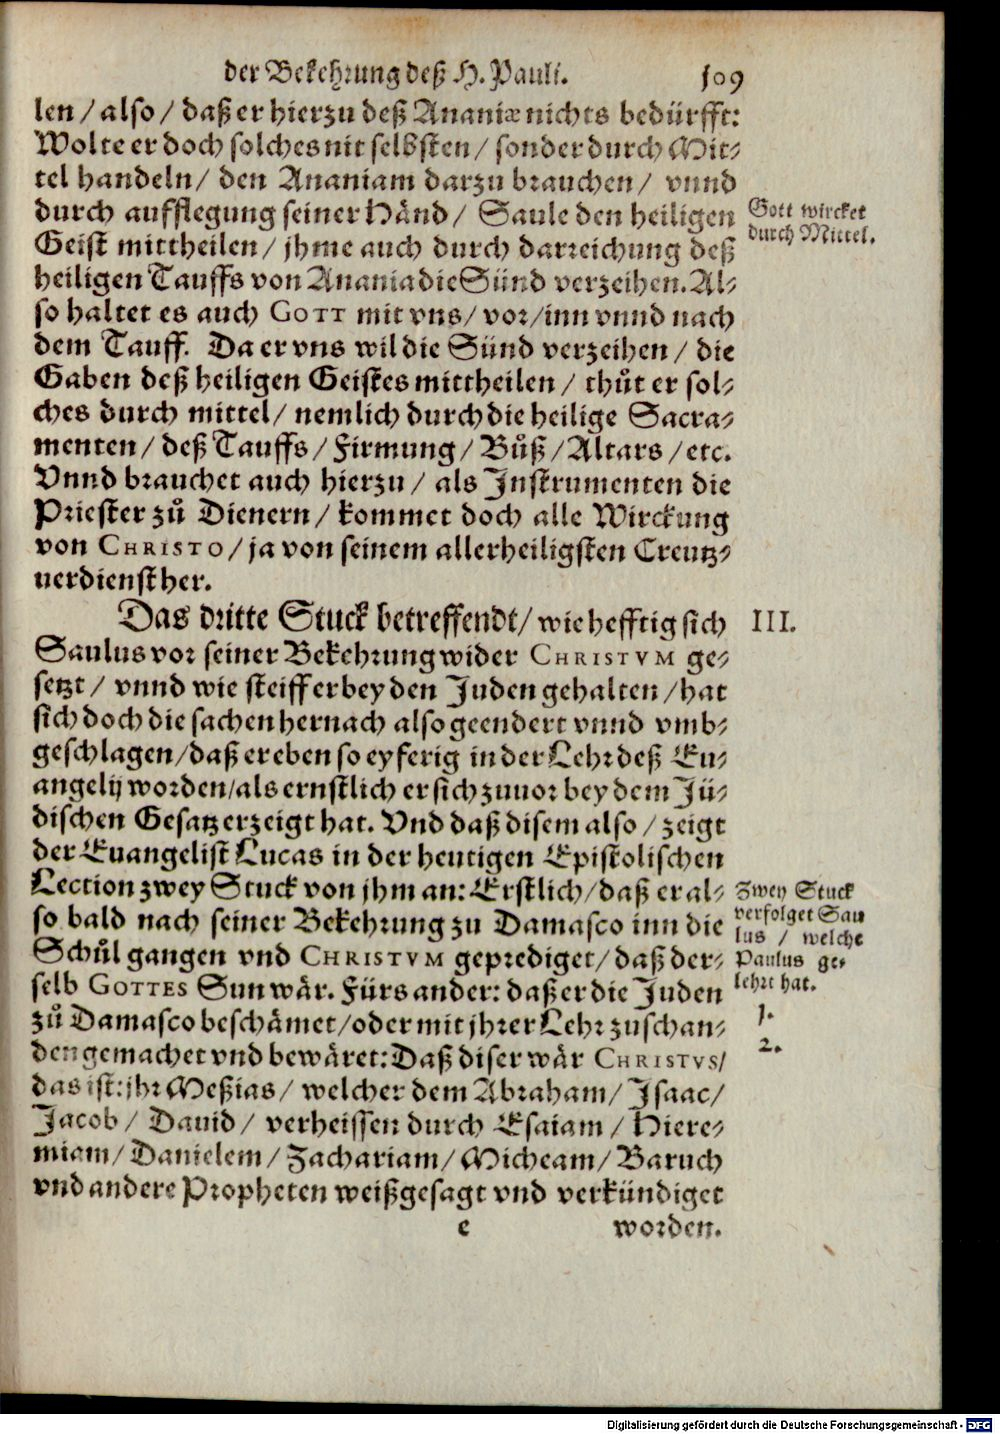 der Bekehrung deß H. Pauli. 109
len / also / daß er hierzu deß Ananiæ nichts bedürfft:
Wolte er doch solches nit selbsten / sonder durch Mit-
tel handeln / den Ananiam darzu brauchen / vnnd
durch aufflegung seiner Händ / Saule den heiligen
Gott wircket
durch Mittel.
Geist mittheilen / jhme auch durch darreichung deß
heiligen Tauffs von Anania die Sünd verzeihen. Al-
so haltet es auch GOTT mit vns / vor / inn vnnd nach
dem Tauff. Da er vns wil die Sünd verzeihen / die
Gaben deß heiligen Geistes mittheilen / thůt er sol-
ches durch mittel / nemlich durch die heilige Sacra-
menten / deß Tauffs / Firmung / Bůß / Altars / etc.
Vnnd brauchet auch hierzu / als Instrumenten die
Priester zů Dienern / kommet doch alle Wirckung
von CHRISTO / ja von seinem allerheiligsten Creutz-
uerdienst her.
Das dritte Stuck betreffendt / wie hefftig sich
III.
Saulus vor seiner Bekehrung wider CHRISTVM ge-
setzt / vnnd wie steiff er bey den Juden gehalten / hat
sich doch die sachen hernach also geendert vnnd vmb-
geschlagen / daß er eben so eyferig in der Lehr deß Eu-
angelij worden / als ernstlich er sich zuuor bey dem Jü-
dischen Gesatz erzeigt hat. Vnd daß disem also / zeigt
der Euangelist Lucas in der heutigen Epistolischen
Lection zwey Stuck von jhm an: Erstlich / daß er al-
so bald nach seiner Bekehrung zu Damasco inn die
Schůl gangen vnd CHRISTVM geprediget / daß der-
selb GOTTES Sun wär. Fürs ander: daß er die Juden
Zwey Stuck
verfolget Sau
lus / welche
Paulus ge-
lehrt hat.
1.
2.
zů Damasco beschämet / oder mit jhrer Lehr zuschan-
den gemachet vnd bewäret: Daß diser wär CHRISTVS /
das ist: jhr Meßias / welcher dem Abraham / Isaac /
Jacob / Dauid / verheissen durch Esaiam / Hiere-
miam / Danielem / Zachariam / Micheam / Baruch
vnd andere Propheten weißgesagt vnd verkündiget
e worden.
Digitalisierung gefördert durch die Deutsche Forschungsgemeinschaft - DFG